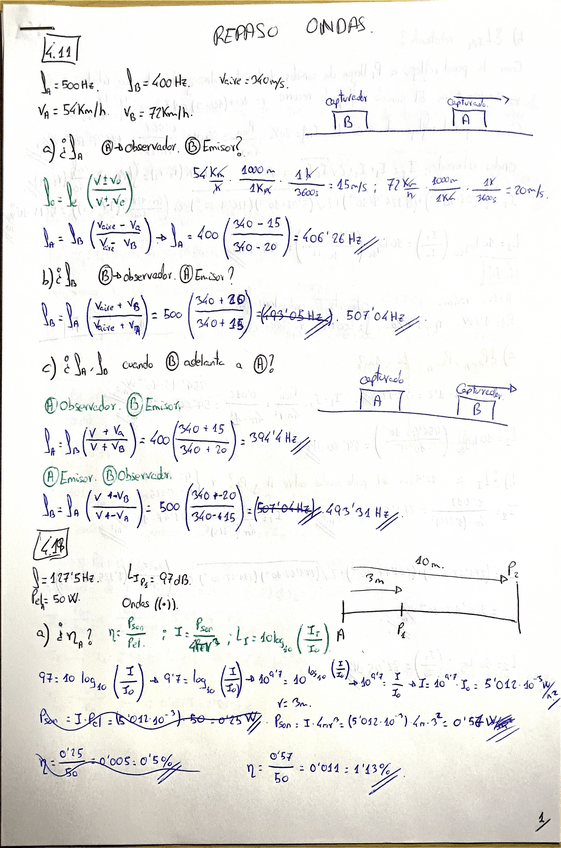 REPASO ONDAS.
4.11
f_A = 500Hz. f_B = 400Hz. Vaire = 340m/s.
V_A = 54Km/h. V_B = 72Km/h.
capturador Capturado.
B A
a) ¿f_A (A)→observador. (B) Emisor?
f_o = f_e (V ± V_o / V ± V_e) 54 Km/h · 1000m/1Km · 1h/3600s = 15m/s ; 72 Km/h · 1000m/1Km · 1h/3600s = 20m/s.
f_A = f_B (Vaire - V_A / Vaire - V_B) → f_A = 400 (340 - 15 / 340 - 20) = 406'26Hz
b) ¿f_B (B)→observador. (A) Emisor?
f_B = f_A (Vaire + V_B / Vaire + V_A) = 500 (340 + 20 / 340 + 15) = (493'05Hz). 507'04Hz
c) ¿f_A, f_B cuando (B) adelanta a (A)?
capturado Capturador
A B
(A) Observador. (B) Emisor.
f_A = f_B (V + V_A / V + V_B) = 400 (340 + 15 / 340 + 20) = 394'4Hz
(A) Emisor. (B) Observador.
f_B = f_A (V - V_B / V - V_A) = 500 (340 - 20 / 340 - 15) = (507'04Hz). 493'31Hz
4.18
f = 127'5Hz. L_I P_2 = 97dB.
Pel = 50W. Ondas ((•)).
10m. P_2
3m
A P_1
a) ¿η_A? η = Pson/Pel. ; I = Pson/4πr² ; L_I = 10log_10 (I_I/I_o)
97 = 10 log_10 (I/I_o) → 9'7 = log_10 (I/I_o) → 10^9'7 = 10^log_10 (I/I_o) → 10^9'7 = I/I_o → I = 10^9'7 · I_o = 5'012·10^-3 W/m²
r = 3m.
Pson = I · Pel = (5'012·10^-3) · 50 = 0'25 W. Pson = I · 4πr² = (5'012·10^-3) 4π · 3² = 0'57 W
η = 0'25/50 = 0'005 = 0'5% η = 0'57/50 = 0'011 = 1'13%
1